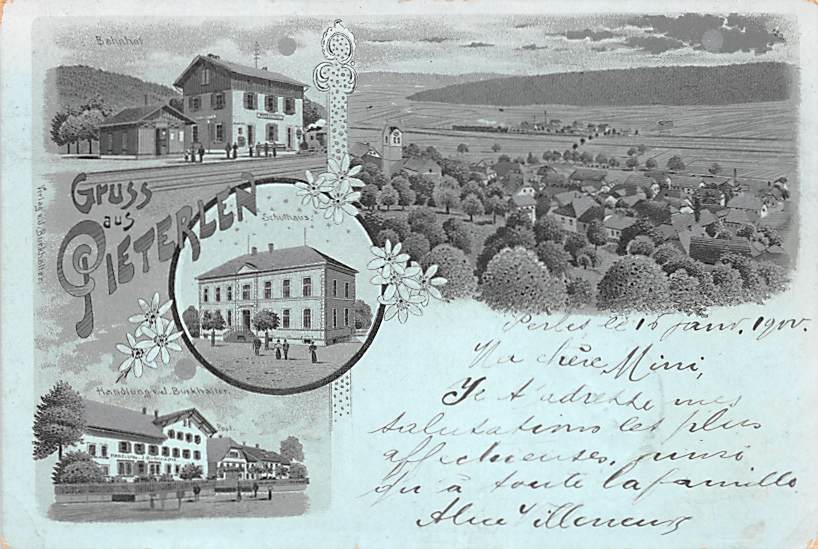 Bahnhof
Gruss
aus
PIETERLEN
Schulhaus.
Handlung v. J. Burkhalter.
Post.
Verlag v. J. Burkhalter.
Perles le 15 janv. 1900.
Ma chère Mimi,
Je t'adresse mes
salutations les plus
affectueuses, ainsi
qu'à toute la famille.
Alice